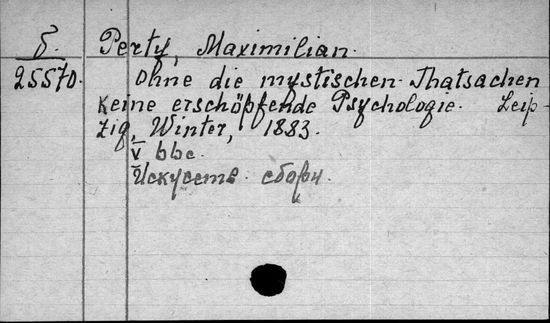 б. Perty, Maximilian.
25570. Ohne die mystischen Thatsachen
keine erschöpfende Psychologie. Leip
zig, Winter, 1883.
V bbc.
Искусств. сборн.